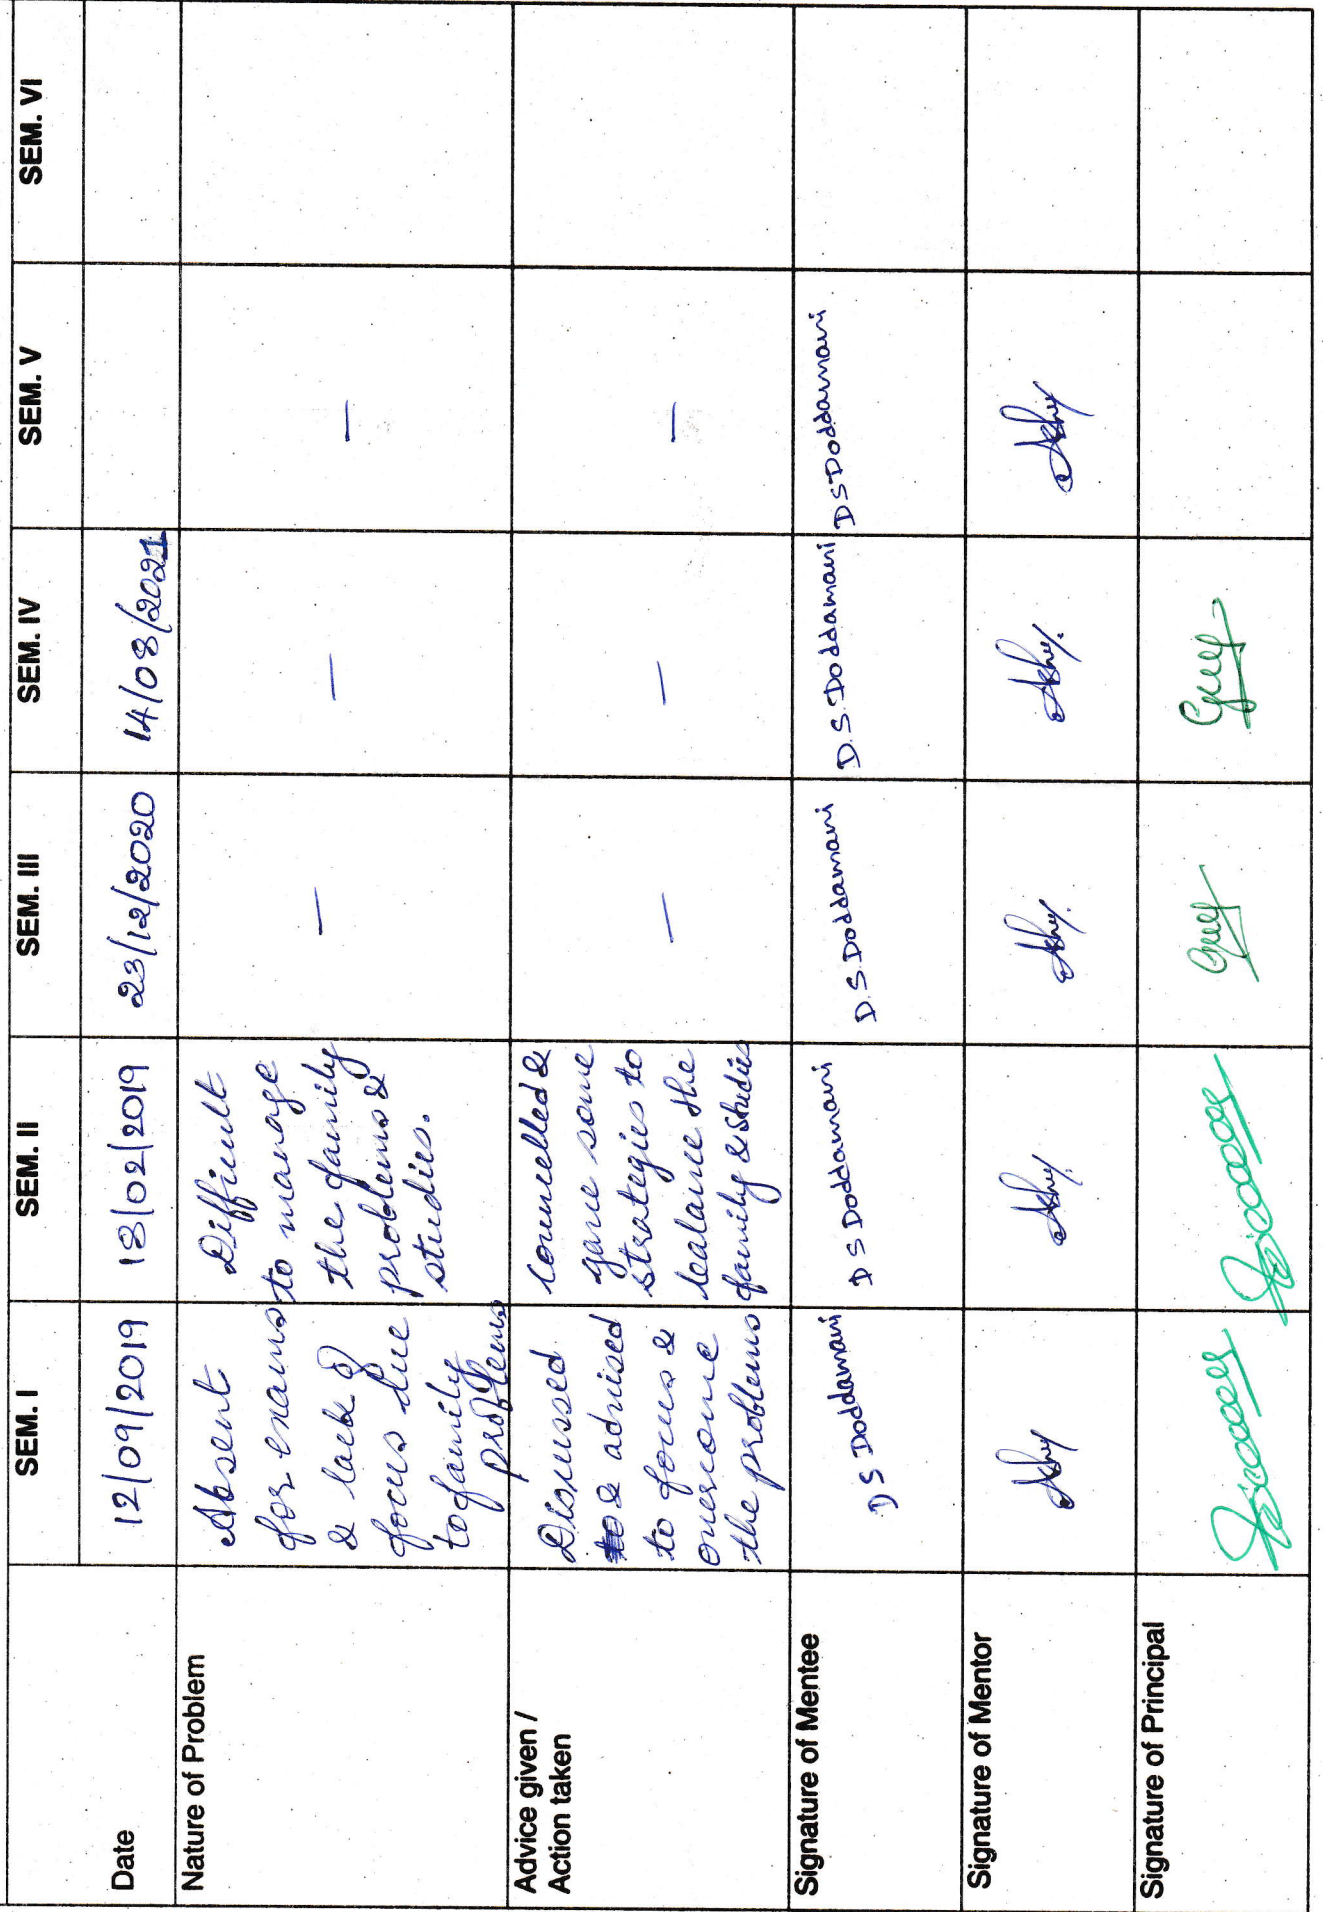 SEM. I SEM. II SEM. III SEM. IV SEM. V SEM. VI
Date 12/09/2019 18/02/2019 23/12/2020 14/08/2021
Nature of Problem
Absent
for exams
& lack of
focus due
to family
problems
Difficult
to manage
the family
problems &
studies.
—
—
—
Advice given /
Action taken
Discussed
& advised
to focus &
overcome
the problems
Counselled &
gave some
strategies to
balance the
family & studies
—
—
—
Signature of Mentee D S Doddamani D S Doddamani D.S.Doddamani D.S.Doddamani D S Doddamani
Signature of Mentor
Signature of Principal